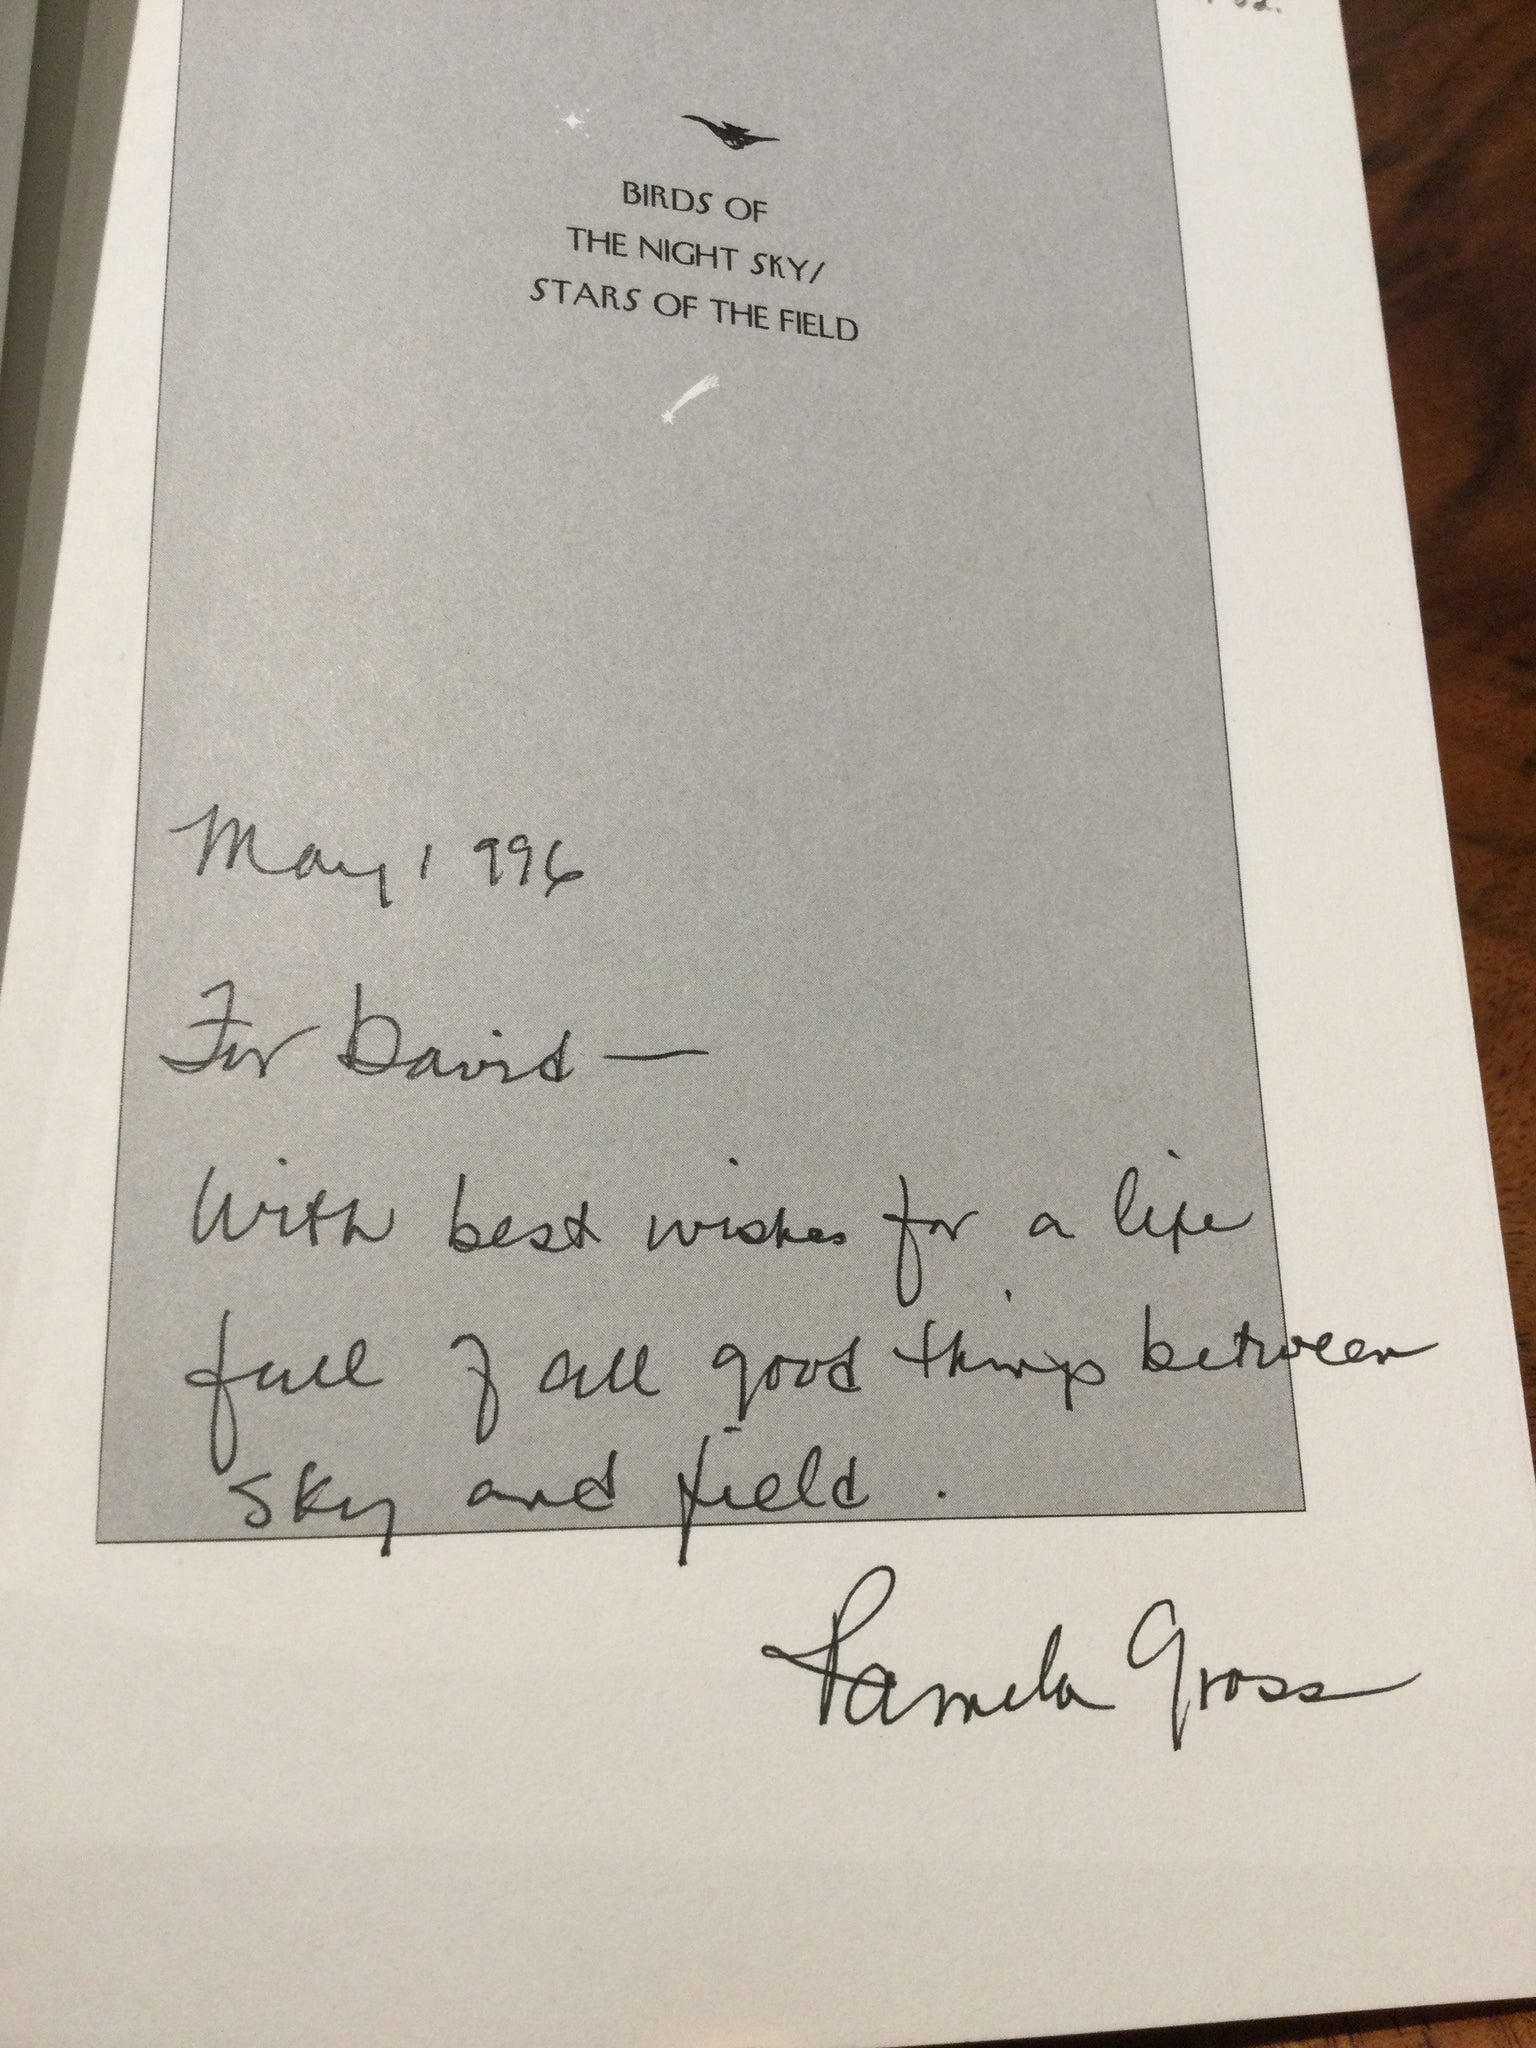 BIRDS OF
THE NIGHT SKY/
STARS OF THE FIELD
May 1996
For David —
With best wishes for a life
full of all good things between
sky and field.
Pamela Gross